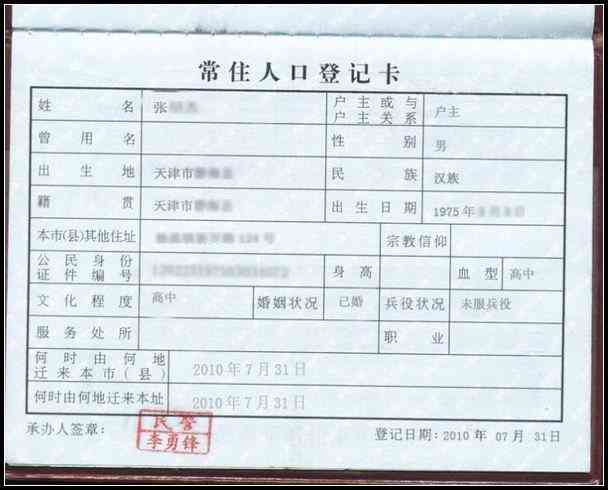 常住人口登记卡
姓名 张 户主或与户主关系 户主
曾用名 性别 男
出生地 天津市 民族 汉族
籍贯 天津市 出生日期 1975年
本市(县)其他住址 号 宗教信仰
公民身份证件编号 身高 血型 高中
文化程度 高中 婚姻状况 已婚 兵役状况 未服兵役
服务处所 职业
何时由何地迁来本市(县) 2010年7月31日
何时由何地迁来本址 2010年7月31日
承办人签章: 民警 李勇锋 登记日期:2010年07月31日